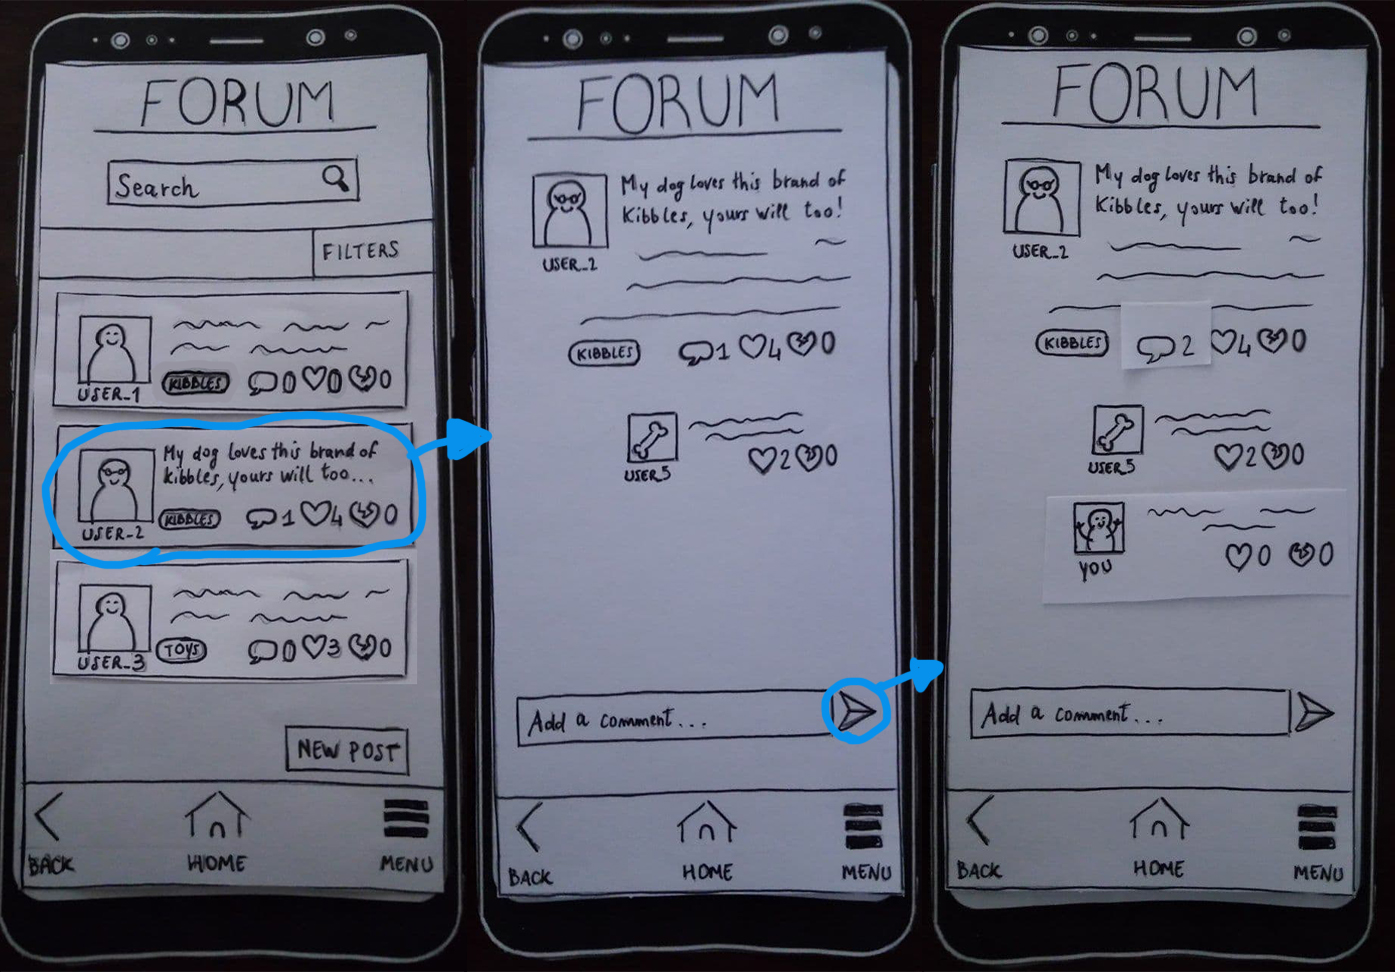 FORUM
Search
FILTERS
USER_1
KIBBLES
0 0 0
My dog loves this brand of
kibbles, yours will too...
USER_2
KIBBLES
1 4 0
USER_3
TOYS
0 3 0
NEW POST
BACK
HOME
MENU
FORUM
My dog loves this brand of
Kibbles, yours will too!
USER_2
KIBBLES
1 4 0
USER_5
2 0
Add a comment...
BACK
HOME
MENU
FORUM
My dog loves this brand of
Kibbles, yours will too!
USER_2
KIBBLES
2 4 0
USER_5
2 0
YOU
0 0
Add a comment...
BACK
HOME
MENU